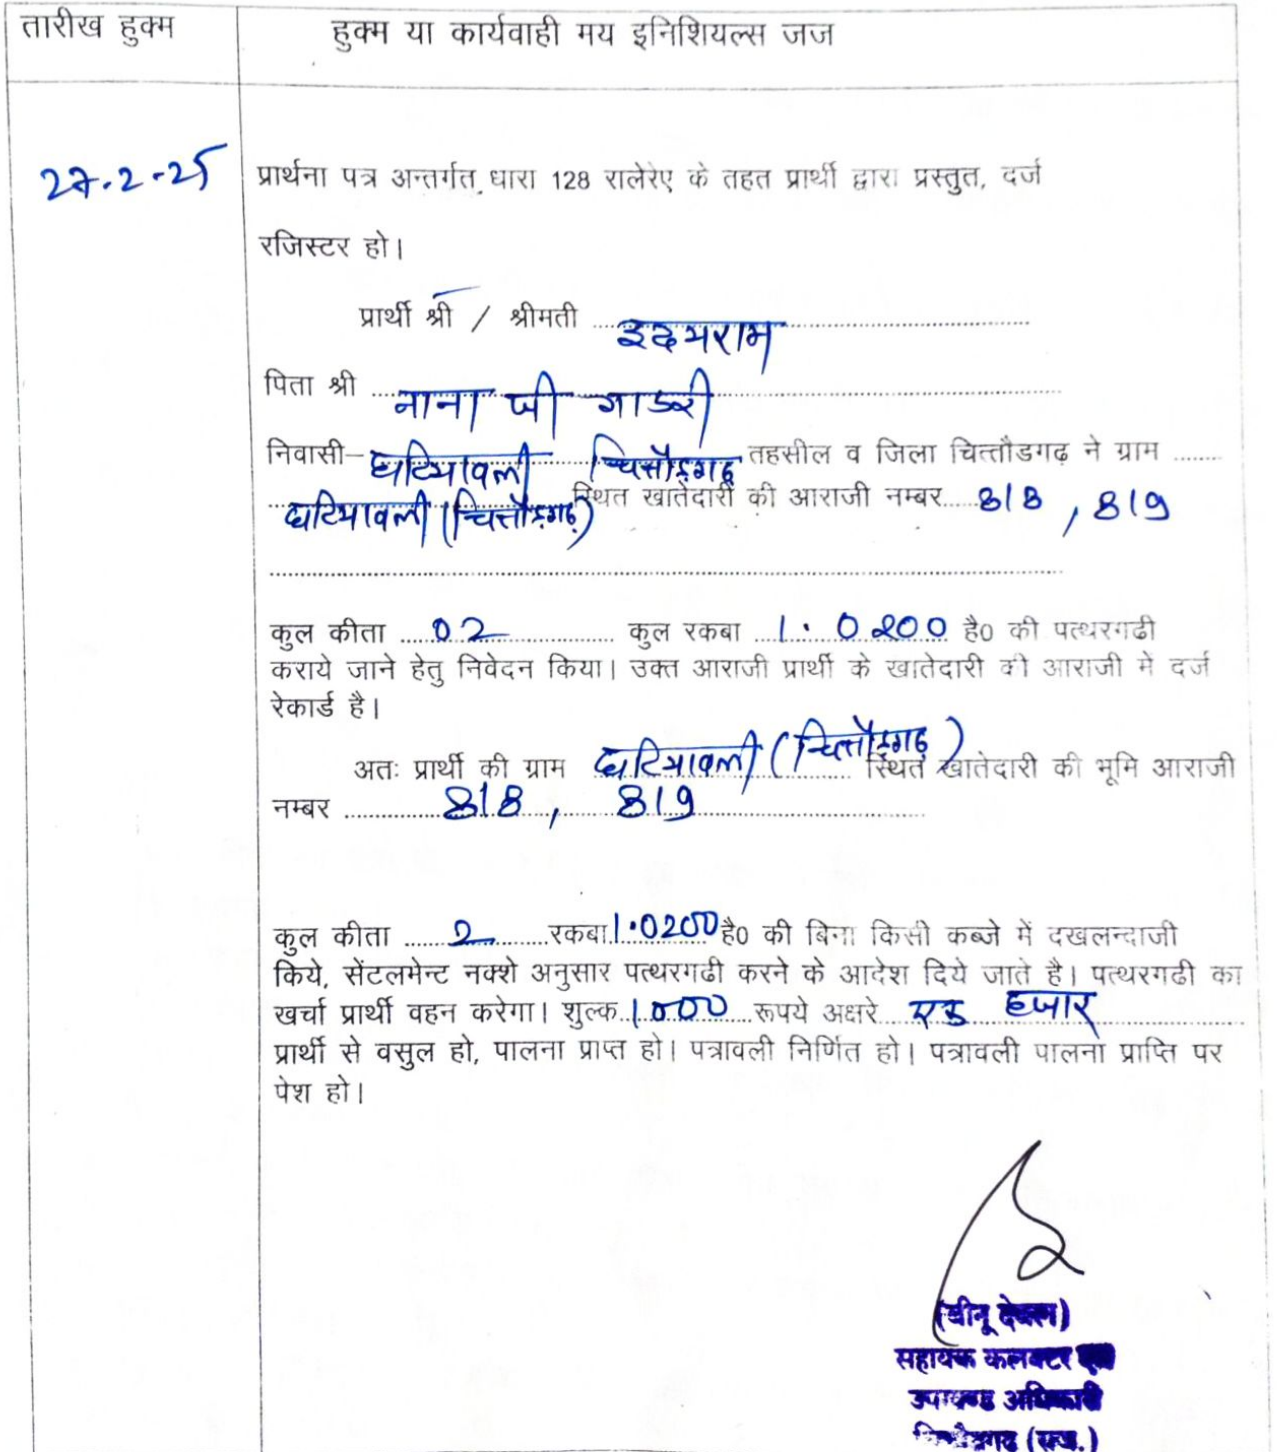 तारीख हुक्म
हुक्म या कार्यवाही मय इनिशियल्स जज
27.2-25
प्रार्थना पत्र अन्तर्गत धारा 128 रालेरेए के तहत प्रार्थी द्वारा प्रस्तुत, दर्ज
रजिस्टर हो।
प्रार्थी श्री / श्रीमती उदयराम
पिता श्री नाना जी गाडरी
निवासी- घटियावली चित्तौड़गढ़ तहसील व जिला चित्तौडगढ़ ने ग्राम ........
घटियावली (चित्तौड़गढ़) स्थित खातेदारी की आराजी नम्बर..... 818 , 819
कुल कीता ..... 02 .......... कुल रकबा ... 1.0200 है0 की पत्थरगढी
कराये जाने हेतु निवेदन किया। उक्त आराजी प्रार्थी के खातेदारी की आराजी में दर्ज
रेकार्ड है।
अतः प्रार्थी की ग्राम घटियावली (चित्तौड़गढ़) स्थित खातेदारी की भूमि आराजी
नम्बर ........... 818 , 819
कुल कीता ....... 2 ........रकबा 1.0200 है0 की बिना किसी कब्जे में दखलन्दाजी
किये, सेंटलमेन्ट नक्शे अनुसार पत्थरगढी करने के आदेश दिये जाते है। पत्थरगढी का
खर्चा प्रार्थी वहन करेगा। शुल्क..1000....रूपये अक्षरे.... एक हजार
प्रार्थी से वसुल हो, पालना प्राप्त हो। पत्रावली निर्णित हो। पत्रावली पालना प्राप्ति पर
पेश हो।
(बीनू देवल)
सहायक कलक्टर एवं
उपखण्ड अधिकारी
चित्तौड़गढ़ (राज.)